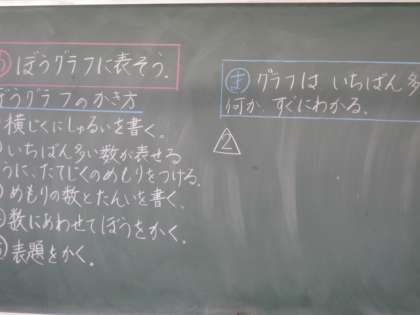 ぼうグラフに表そう.
ぼうグラフのかき方
横じくにしゅるいを書く。
いちばん多い数が表せる
うに、たてじくのめもりをつける.
めもりの数とたんいを書く、
数にあわせてぼうをかく。
表題をかく。
ま グラフは いちばん多
何か すぐにわかる.
2